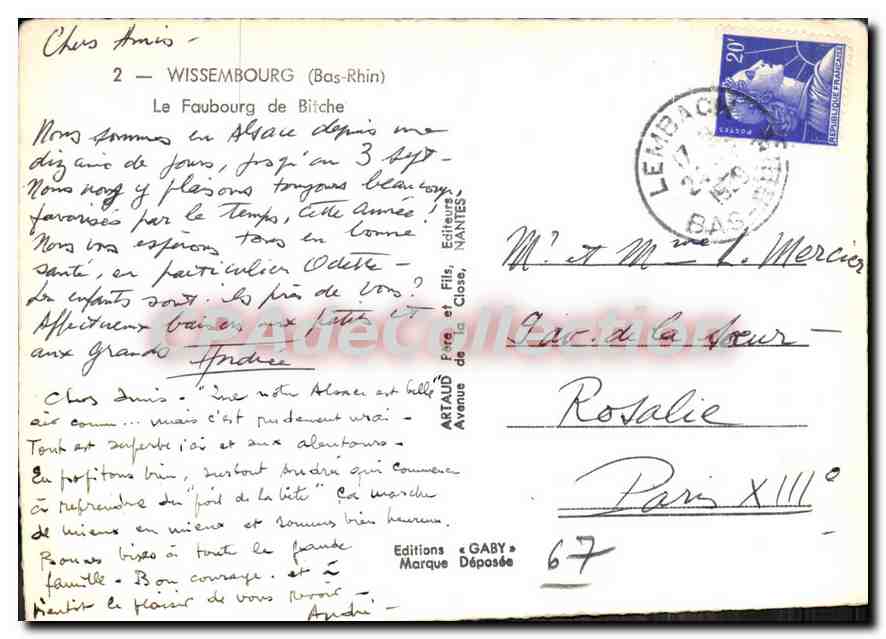 Chers Amis -
2 — WISSEMBOURG (Bas-Rhin)
Le Faubourg de Bitche
Nous sommes en Alsace depuis une
dizaine de jours, jusqu'au 3 Sept -
Nous nous y plaisons toujours beaucoup,
favorisés par le temps, cette année!
Nous vous espérons tous en bonne
santé, en particulier Odette -
Les enfants sont-ils près de vous?
Affectueux baisers aux petits et
aux grands Andrée
Chers amis - "Que notre Alsace est belle"
air connu... mais c'est rudement vrai -
Tout est superbe ici et aux alentours -
En profitons bien, surtout Andrée qui commence
à reprendre du "poil de la bête" Ça marche
de mieux en mieux et sommes bien heureux.
Bonnes bises à toute la grande
famille - Bon courage - et à
bientôt le plaisir de vous revoir -
André -
ARTAUD Père et Fils, Editeurs
Avenue de la Close, NANTES
Editions « GABY »
Marque Déposée
20F
POSTES
REPUBLIQUE FRANÇAISE
LEMBACH
17
BAS-RHIN
Mr et Mme L. Mercier
9 av. de la Sœur
Rosalie
Paris XIIIe
67
CPAdeCollection